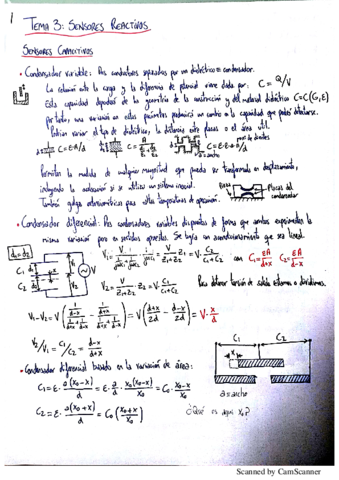 1
TEMA 3: SENSORES REACTIVOS
SENSORES CAPACITIVOS
• Condensador variable: Dos conductores separados por un dieléctrico = condensador.
La relación entre la carga y la diferencia de potencial viene dada por: C = Q/V
Esta capacidad dependerá de la geometría de la construcción y del material dieléctrico C=C(G,E)
por tanto, una variación en estos parámetros producirá un cambio en la capacidad que podrá detectarse.
Podrían variar el tipo de dieléctrico, la distancia entre placas o el área útil.
C=E·A/d
Permiten la medida de cualquier magnitud que pueda ser transformada en desplazamiento,
incluyendo la aceleración si se utiliza un sistema inercial.
Placas del condensador
• Condensador diferencial: Dos condensadores variables dispuestos de forma que ambos experimenten la
misma variación pero en sentidos opuestos. Se logra un acondicionamiento que sea lineal.
d1=d2
C1
C2
V
con C1=EA/(d+x) C2=EA/(d-x)
V1-V2=V = V((d+x)/2d - (d-x)/2d) = V·x/d
V2/V1=C1/C2=(d-x)/(d+x)
• Condensador diferencial basado en la variación de área:
C1=E·a(x0-x)/d=E·a/d·x0(x0-x)/x0=C0·(x0-x)/x0
C2=E·a(x0+x)/d=C0((x0+x)/x0)
C1
C2
x
a=ancho
¿Qué es aquí x0?
Scanned by CamScanner